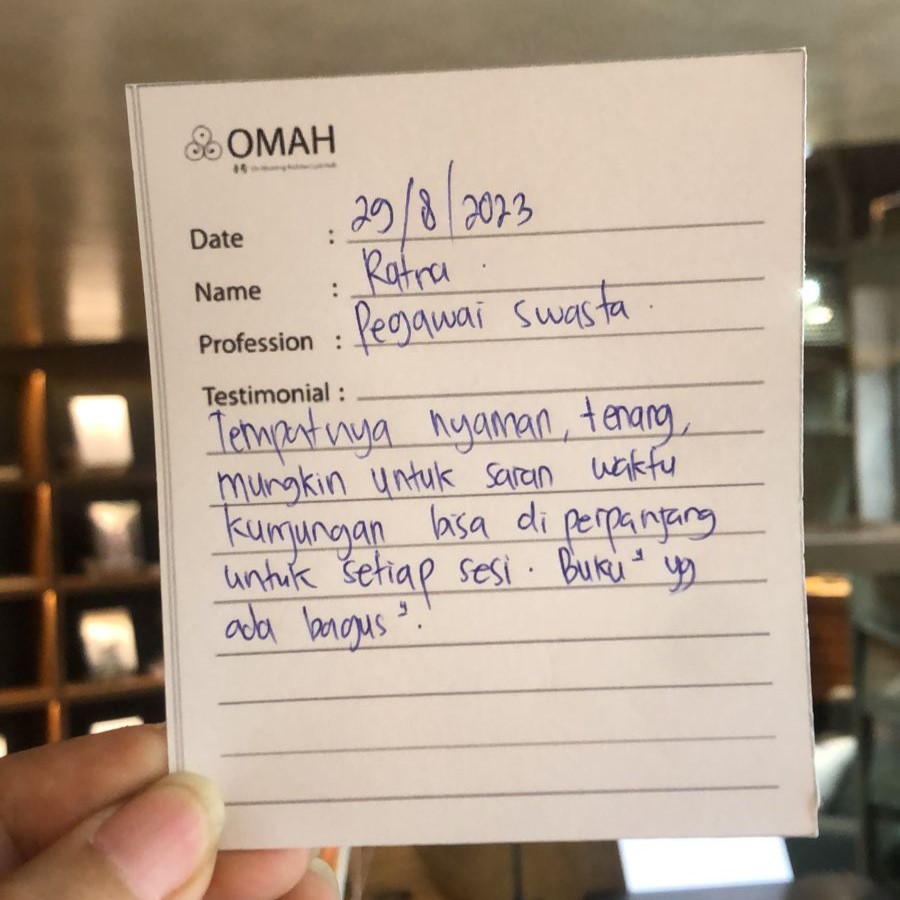 OMAH
Date : 29/8/2023
Name : Ratra
Profession : Pegawai Swasta
Testimonial :
Tempatnya nyaman, tenang,
mungkin untuk saran waktu
kunjungan bisa di perpanjang
untuk setiap sesi. Buku" yg
ada bagus".